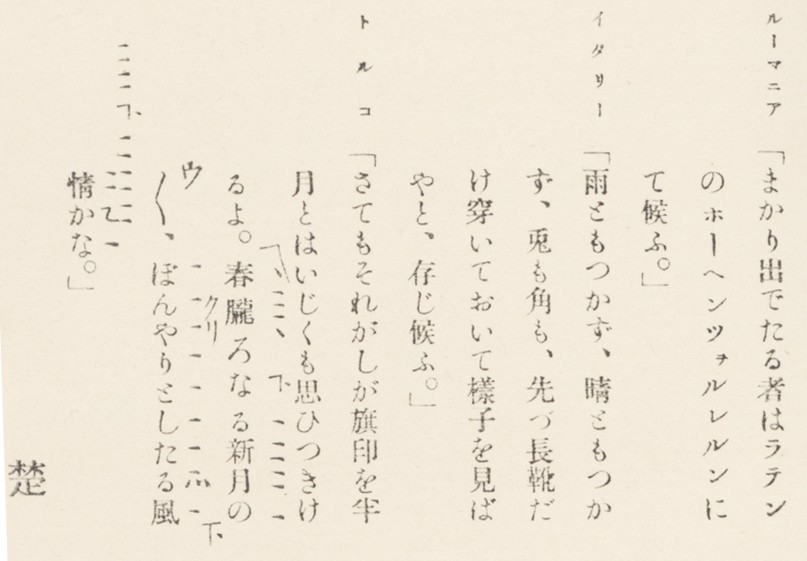 ルーマニア「まかり出でたる者はラテン
のホーヘンツォルレルンに
て候ふ。」
イタリー「雨ともつかず、晴ともつか
ず、兎も角も、先づ長靴だ
け穿いておいて様子を見ば
やと、存じ候ふ。」
トルコ「さてもそれがしが旗印を半
月とはいじくも思ひつきけ
るよ。春朧ろなる新月の
〳〵、ぼんやりとしたる風
情かな。」
楚